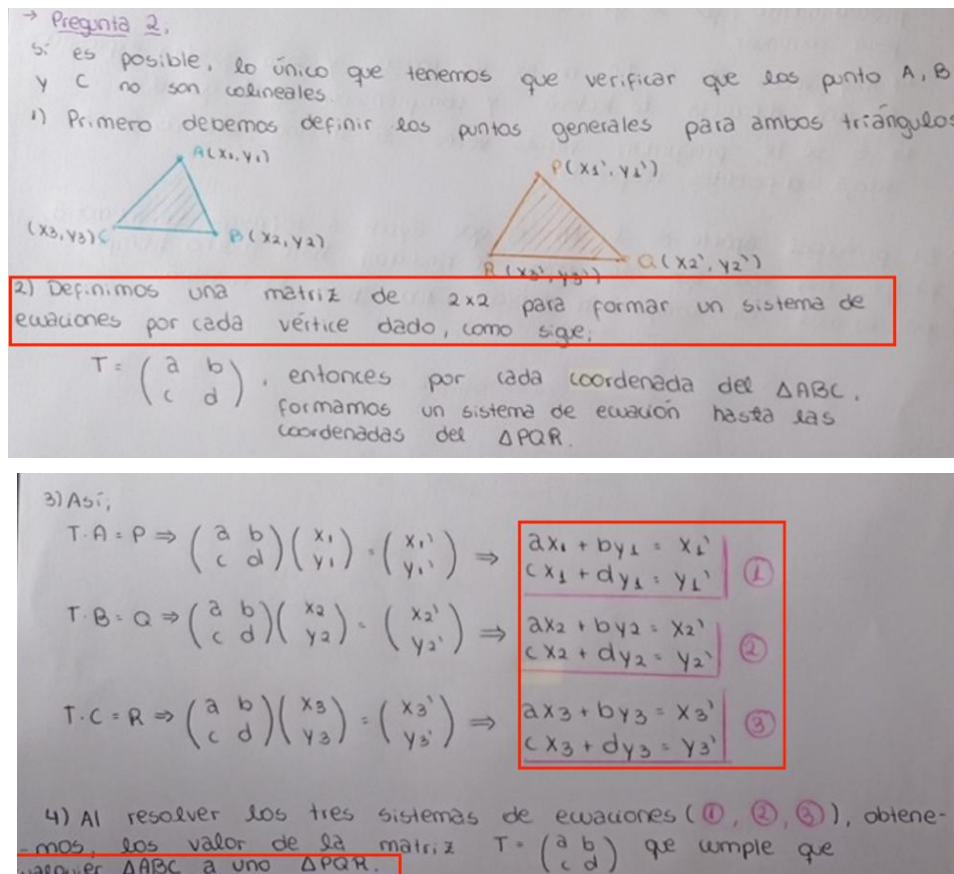 → Pregunta 2.
Sí es posible, lo único que tenemos que verificar que los punto A, B
y C no son colineales
1) Primero debemos definir los puntos generales para ambos triángulos
A(x1, y1)
P(x1', y1')
(x3, y3) C
B(x2, y2)
R(x3', y3')
Q(x2', y2')
2) Definimos una matriz de 2x2 para formar un sistema de
ecuaciones por cada vértice dado, como sigue;
T = ( a b
c d ) , entonces por cada coordenada del ΔABC.
formamos un sistema de ecuación hasta las
coordenadas del ΔPQR.
3) Así;
T·A = P ⇒ ( a b ) ( x1 ) = ( x1' ) ⇒ ax1 + by1 = x1'
( c d ) ( y1 ) ( y1' ) cx1 + dy1 = y1' ①
T·B = Q ⇒ ( a b ) ( x2 ) = ( x2' ) ⇒ ax2 + by2 = x2'
( c d ) ( y2 ) ( y2' ) cx2 + dy2 = y2' ②
T·C = R ⇒ ( a b ) ( x3 ) = ( x3' ) ⇒ ax3 + by3 = x3'
( c d ) ( y3 ) ( y3' ) cx3 + dy3 = y3' ③
4) Al resolver los tres sistemas de ecuaciones (①, ②, ③), obtene-
-mos, los valor de la matriz T = ( a b
c d ) que cumple que
ΔABC a uno ΔPQR.